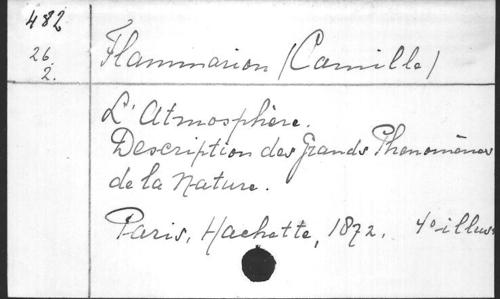 482
26.
2.
Flammarion (Camille)
L'Atmosphère.
Description des grands Phenomènes
de la Nature.
Paris, Hachette, 1872. 4º illus